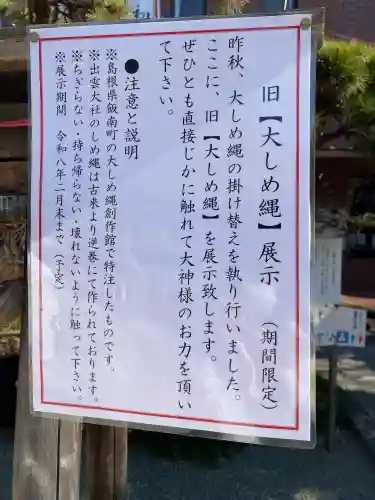 旧【大しめ縄】展示　（期間限定）
昨秋、大しめ縄の掛け替えを執り行いました。
ここに、旧【大しめ縄】を展示致します。
ぜひとも直接じかに触れて大神様のお力を頂い
て下さい。
●注意と説明
※島根県飯南町の大しめ縄創作館で特注したものです。
※出雲大社のしめ縄は古来より逆巻にて作られております。
※ちぎらない・持ち帰らない・壊れないように触って下さい。
※展示期間　令和八年二月末まで（予定）